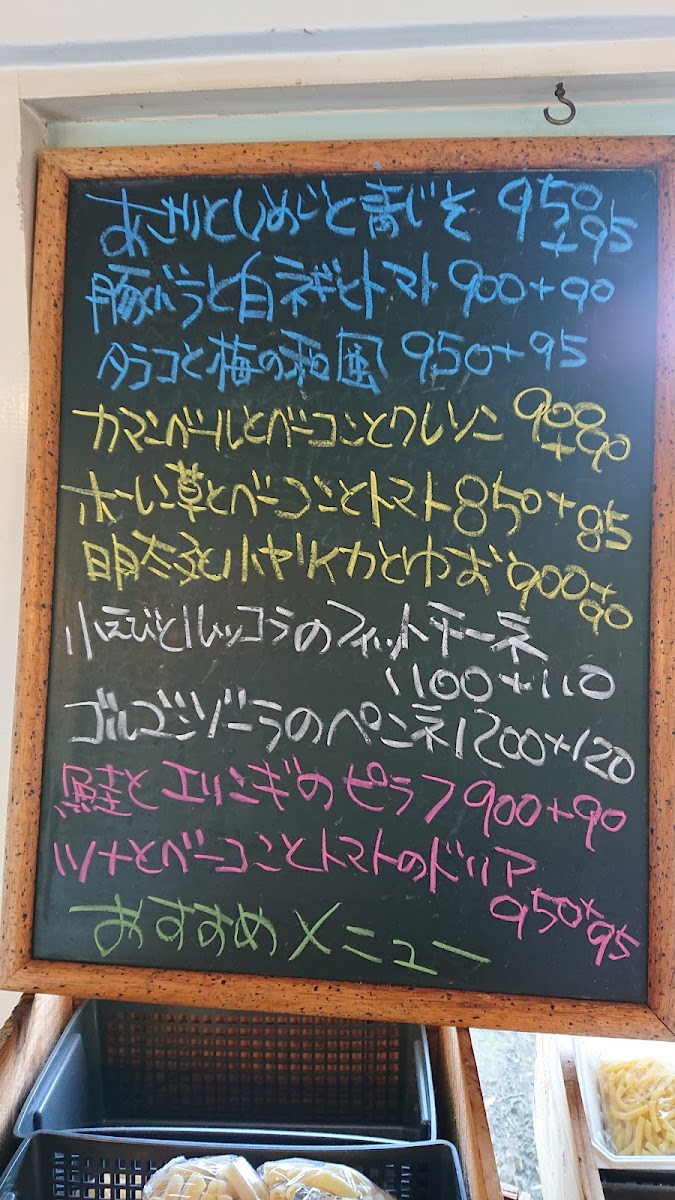 あさりとしめじと青じそ 950+95
豚バラと白ネギとトマト 900+90
タラコと梅の和風 950+95
カマンベールとベーコンとクレソン 900+90
ホーレン草とベーコンとトマト 850+85
明太子とイカとゆず 900+90
小えびとルッコラのフィットチーネ
1100+110
ゴルゴンゾーラのペンネ 1200+120
鮭とエリンギのピラフ 900+90
ツナとベーコンとトマトのドリア
950+95
おすすめメニュー